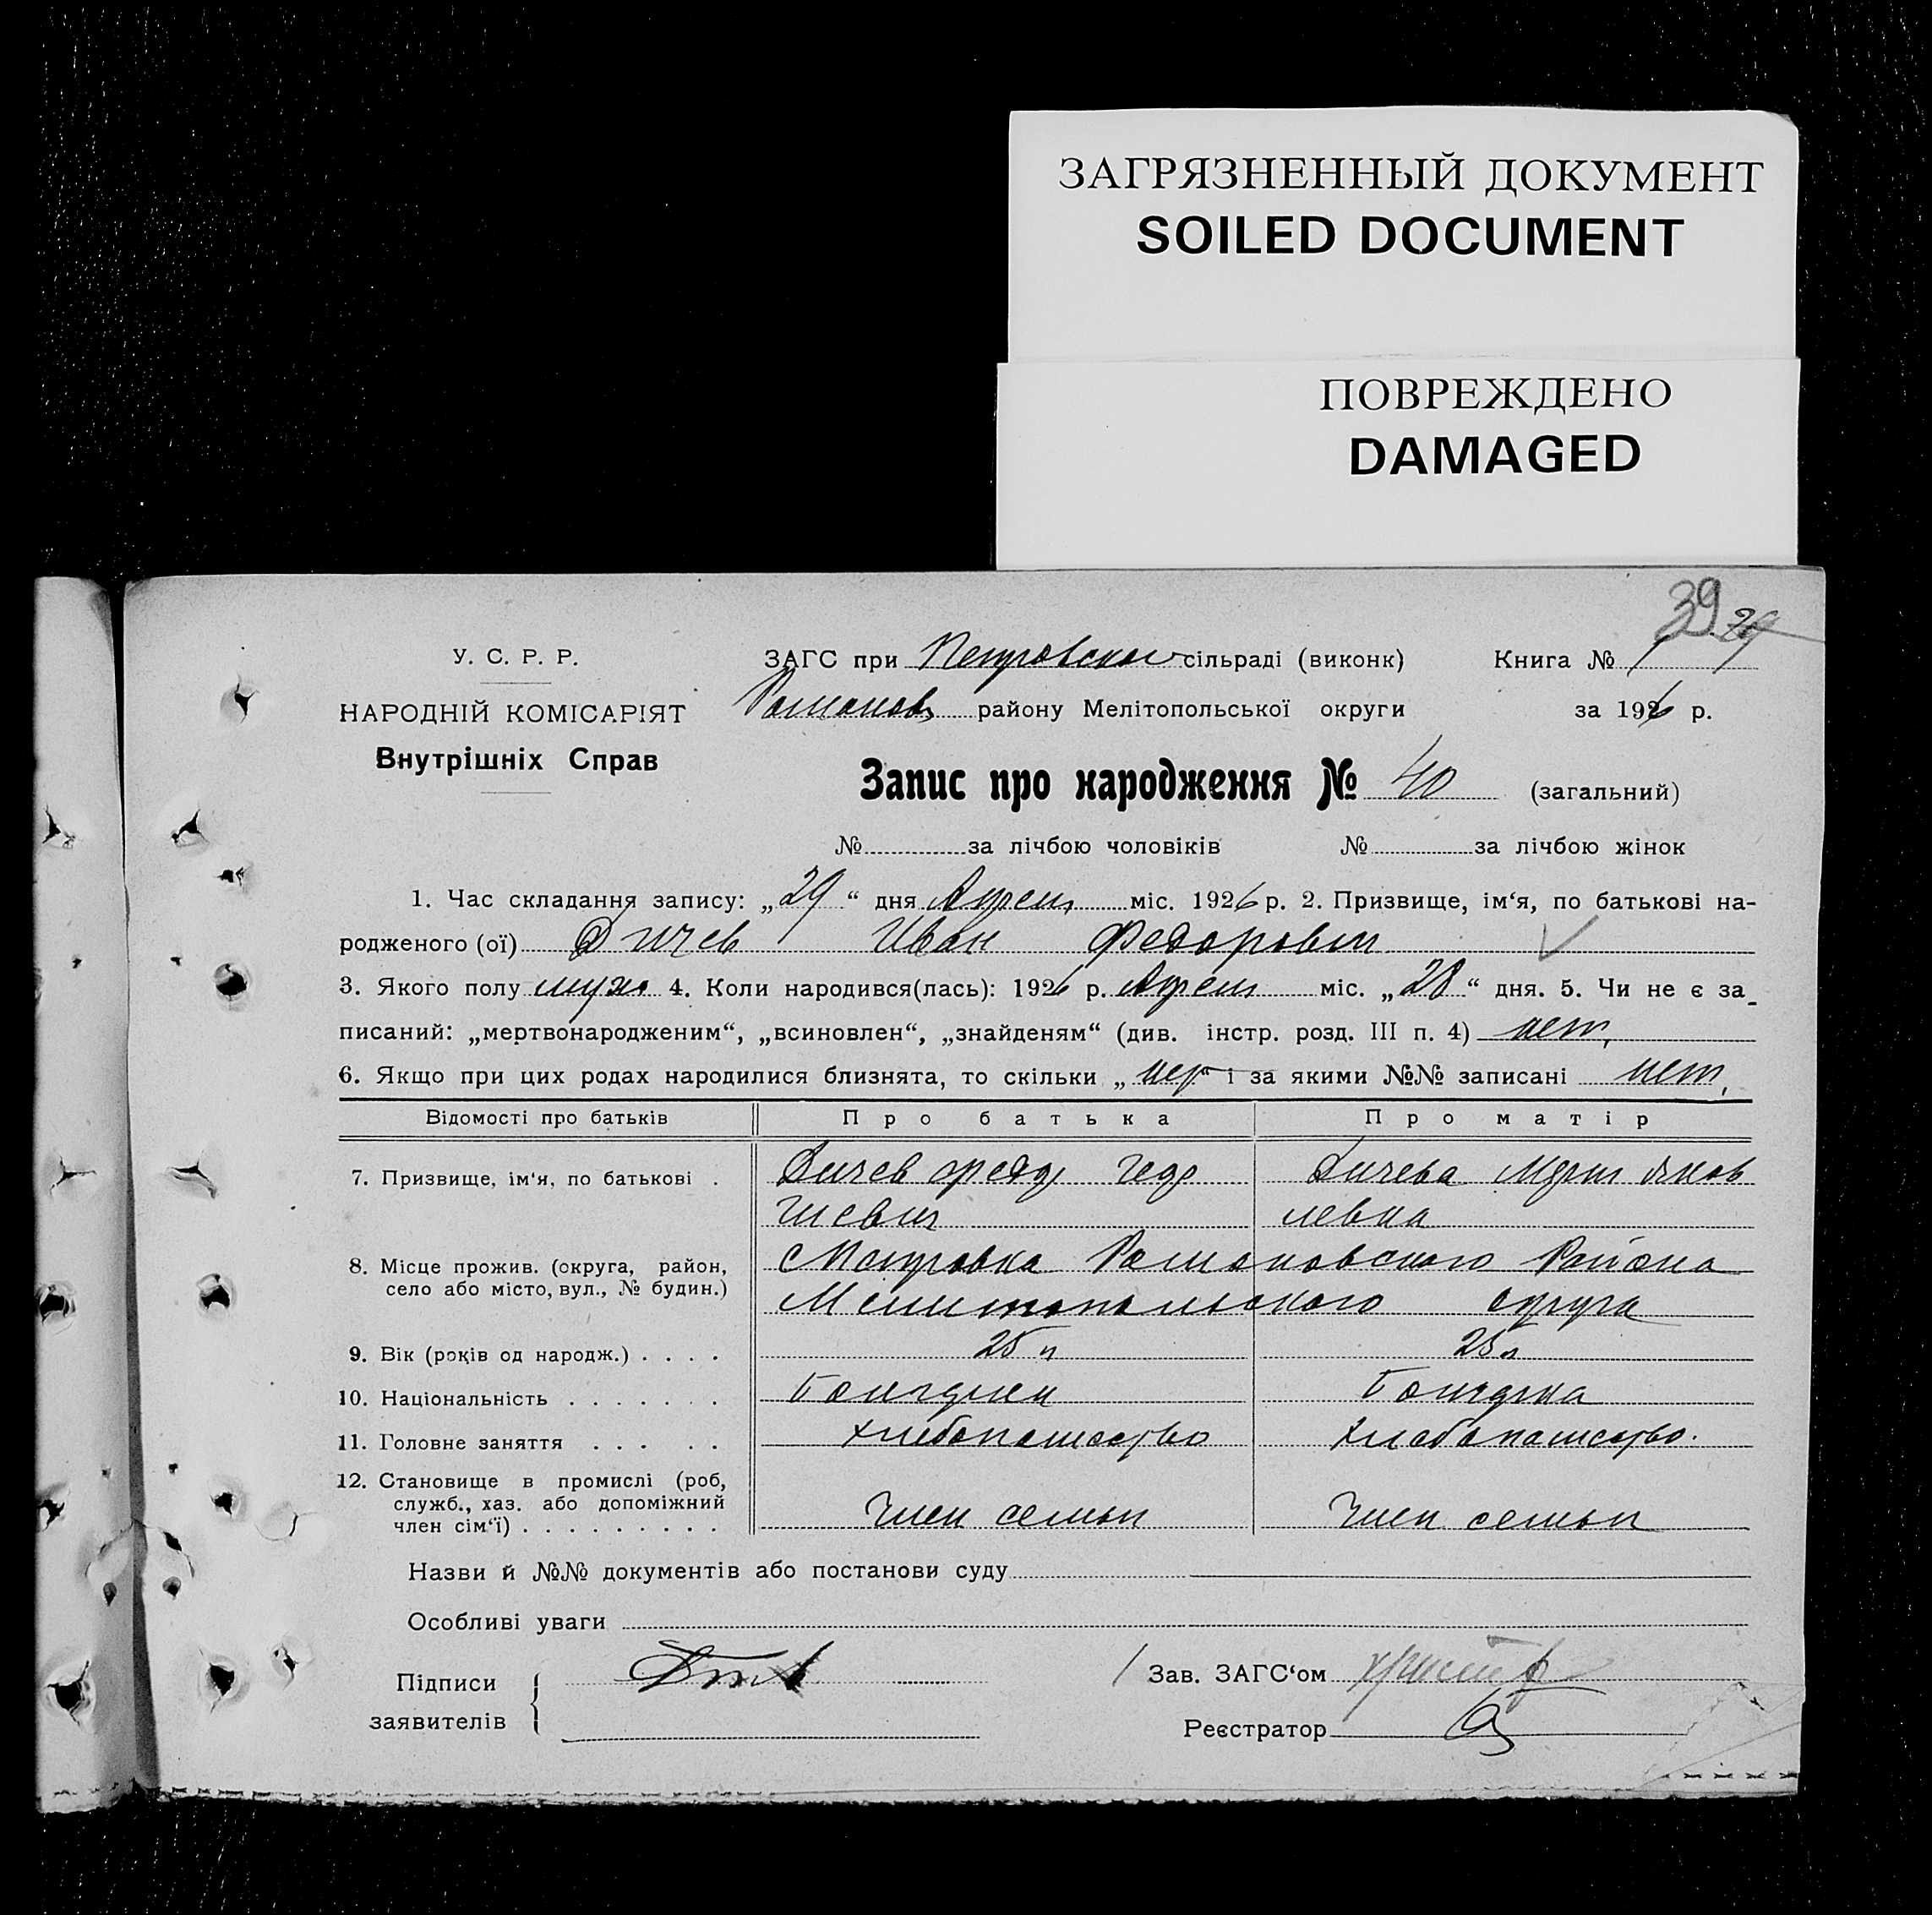 ЗАГРЯЗНЕННЫЙ ДОКУМЕНТ
SOILED DOCUMENT
ПОВРЕЖДЕНО
DAMAGED
39 29
У. С. Р. Р.
НАРОДНІЙ КОМІСАРІЯТ
Внутрішніх Справ
ЗАГС при Петровском сільраді (виконк) Книга № 1
Романов району Мелітопольської округи за 1926 р.
Запис про народження № 40 (загальний)
№ за лічбою чоловіків № за лічбою жінок
1. Час складання запису: „29“ дня Апреля міс. 1926 р. 2. Призвище, ім‘я, по батькові на-
родженого (ої) Дичев Иван Федорович
3. Якого полу муж. 4. Коли народився(лась): 1926 р. Апреля міс. „28“ дня. 5. Чи не є за-
писаний: „мертвонародженим“, „всиновлен“, „знайденям“ (див. інстр. розд. III п. 4) нет,
6. Якщо при цих родах народилися близнята, то скільки „нет“ і за якими №№ записані нет,
Відомості про батьків Про батька Про матір
7. Призвище, ім‘я, по батькові . Дичев Дичева Яков
левна
8. Місце прожив. (округа, район, с Петровка Романовского Района
село або місто, вул., № будин.) Мелитопольского округа
9. Вік (років од народж.) . . . . 25 л 25 л
10. Національність . . . . . . . Болгарин Болгарка
11. Головне заняття . . . . . хлебопашество хлебопашество.
12. Становище в промислі (роб,
служб., хаз. або допоміжний
член сім‘ї) . . . . . . . . . Член семьи Член семьи
Назви й №№ документів або постанови суду
Особливі уваги
Підписи Зав. ЗАГС‘ом
заявителів Реєстратор